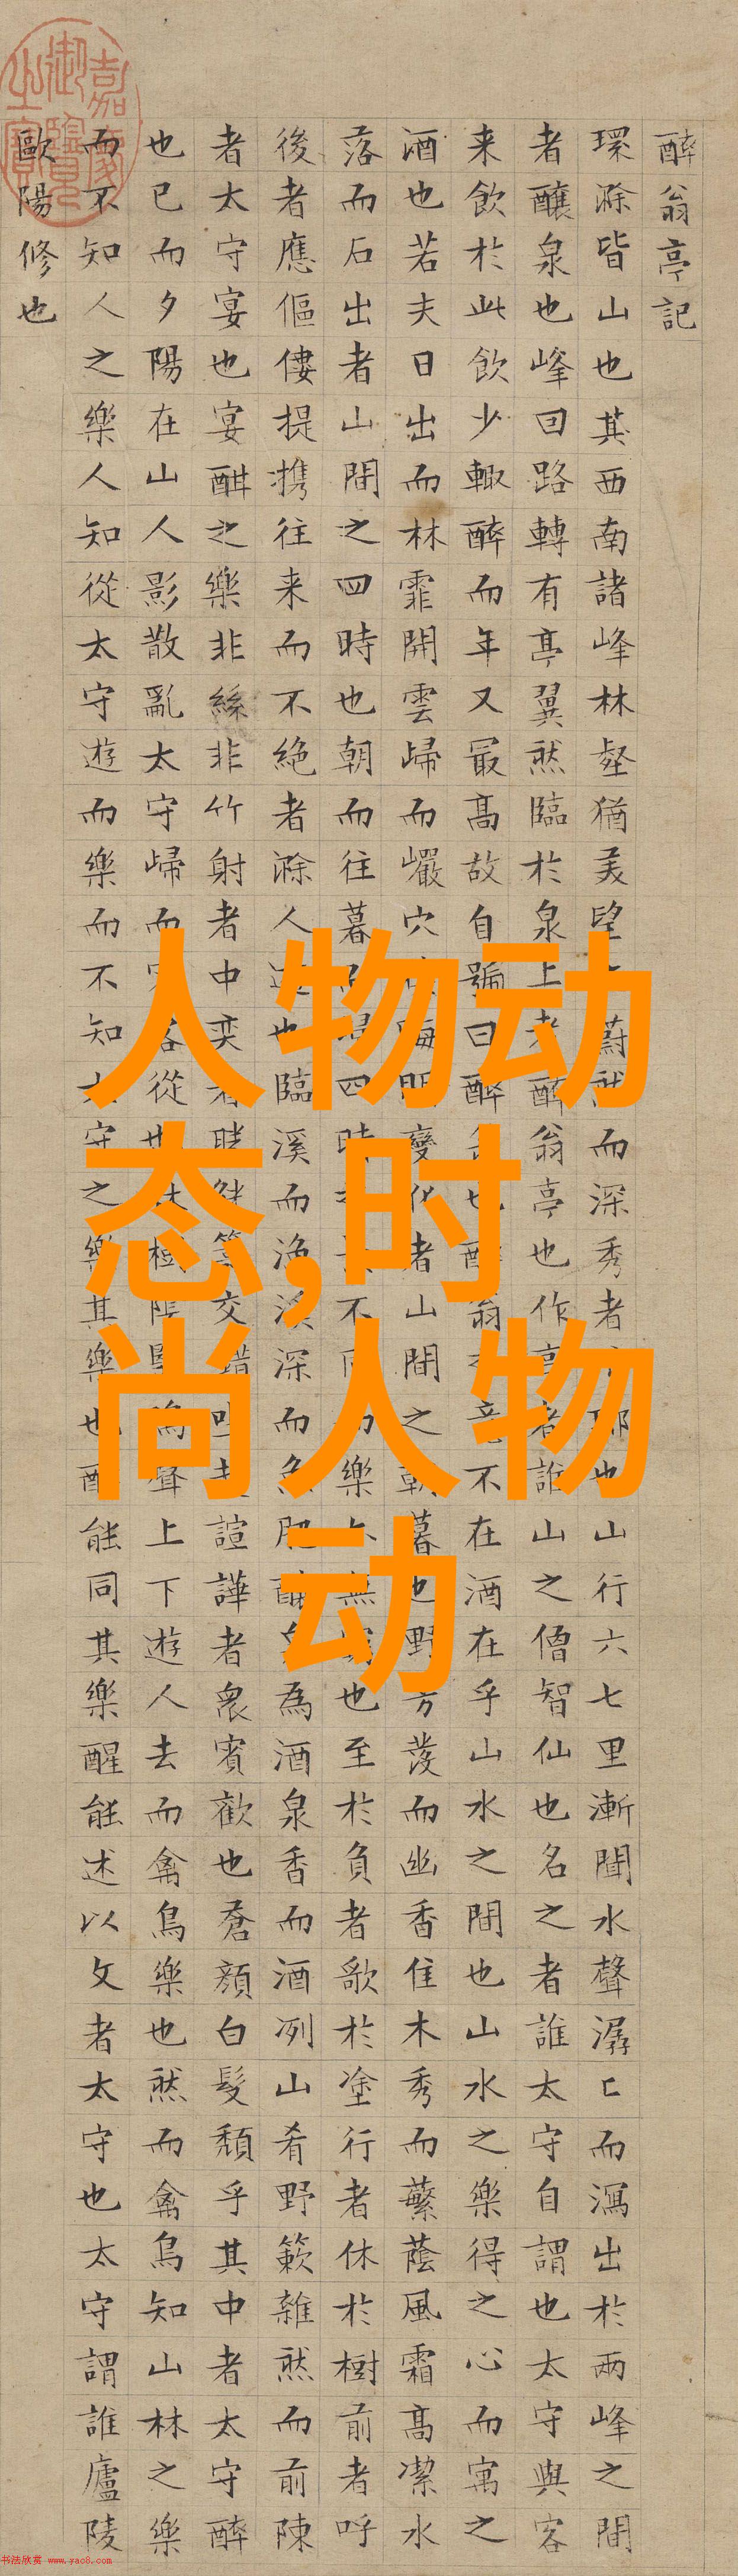 醉翁亭記
環滁皆山也其西南諸峰林壑猶美望蔚然而深秀者琊也山行六七里漸聞水聲潺〻而瀉出於兩峰之間
者釀泉也峰回路轉有亭翼然臨於泉上者醉翁亭也作亭者誰山之僧智仙也名之者誰太守自謂也太守與客
来飲於此飲少輒醉而年又最高故自號曰醉翁也醉翁之意不在酒在乎山水之間也山水之樂得之心而寓之
酒也若夫日出而林霏開雲歸而巖穴暝晦明變化者山間之朝暮也野芳發而幽香佳木秀而蘩蔭風霜高潔水
落而石出者山間之四時也朝而往暮而歸四時之景不同而樂亦無窮也至於負者歌於塗行者休於樹前者呼
後者應傴僂提携往来而不絕者滁人遊也臨溪而漁溪深而魚肥釀泉為酒泉香而酒冽山肴野蔌雜然而前陳
者太守宴也宴酣之樂非絲非竹射者中奕者勝觥籌交錯坐起諠譁者衆賓歡也蒼顏白髮頹乎其中者太守醉
也已而夕陽在山人影散亂太守歸而賓客從也林樹陰翳鳴聲上下遊人去而禽鳥樂也然而禽鳥知山林之樂
而不知人之樂人知從太守遊而樂而不知太守之樂其樂也醉能同其樂醒能述以文者太守也太守謂誰廬陵
歐陽修也
嘉慶御覽之寶
人物动
态,时
尚人物
动
书法欣赏 www.yac8.com